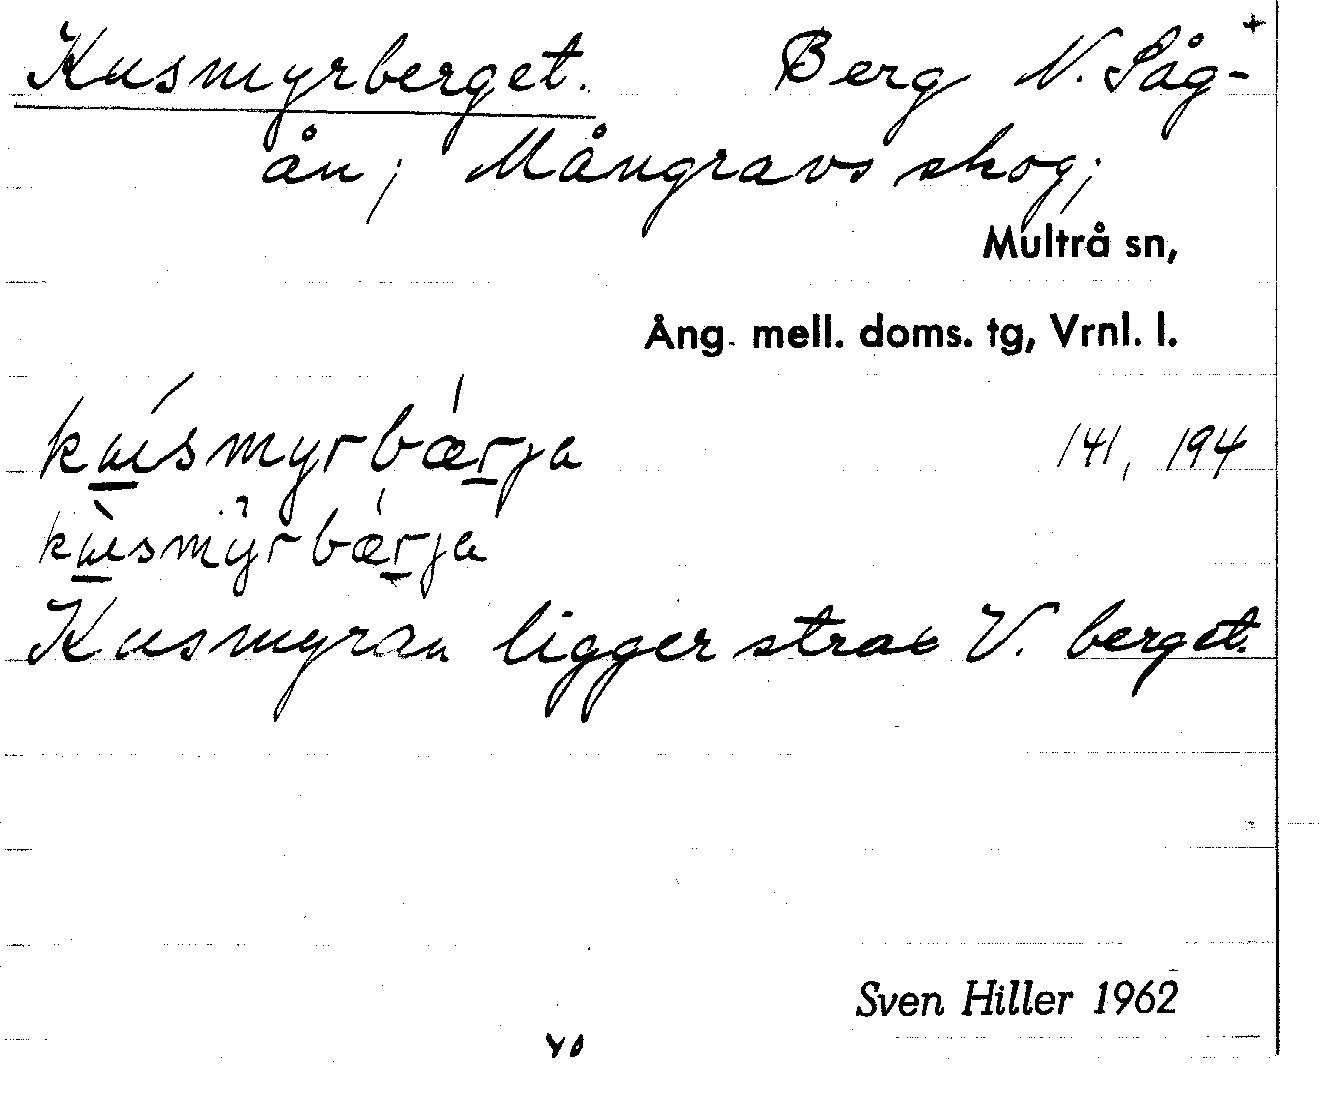 Kusmyrberget. Berg N. Såg- +
ån; Mångravs skog;
Multrå sn,
Ång. mell. doms. tg, Vrnl. l.
kusmyrbærja 141, 194
kusmyrbærja
Kusmyran ligger strax V. berget.
Sven Hiller 1962